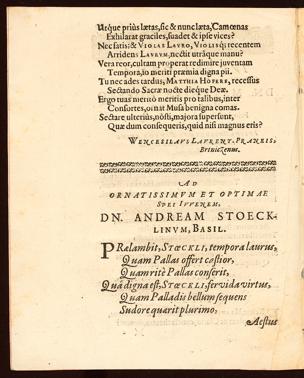 Utque priùs lætas, sic & nunc læta, Camœnas
Exhilarat graciles, suadet & ipse vices?
Nec satis: & VIOLAE LAURO, VIOLISq; recentem
Arridens LAURUM, nectit utrâque manu?
Vera reor, cultam properat redimire juventam
Tempora, io meriti præmia digna pii.
Tu nec ades tardus, MATTHIA HOPERE, recessus
Sectando Sacræ nocte dieque Deæ.
Ergo tuas meritò meritis pro talibus, inter
Consortes, ornat Musa benigna comas.
Sectare ulterius, nôsti, majora supersunt,
Quæ dum consequeris, quid nisi magnus eris?
WENCESILAUS LAURENT. PRANEIS,
AD
ORNATISSIMUM ET OPTIMAE
SPEI IUVENEM,
DN. ANDREAM STOECK-
LINUM, BASIL.
PRælambit, STŒCKLI, tempora laurus,
Quam Pallas offert castior,
Quam ritè Pallas conserit,
Quâ digna est, STŒCKLI, fervida virtus,
Quam Palladis bellum sequens
Sudore quærit plurimo,
Aestus